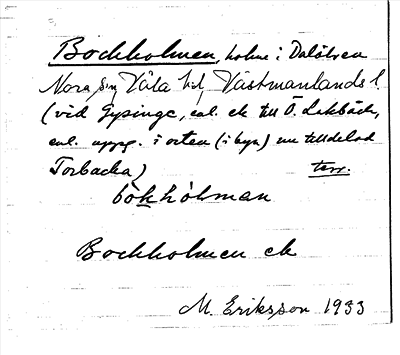 Bockholmen, holme i Dalälven
Nora sn, Våla hd, Västmanlands l.
(vid Gysinge, enl. ek till Ö. Lakbäck,
enl. uppg. i orten (i byn) nu tilldelad
Torbacka) terr.
bòkhòlman
Bockholmen ek
M. Eriksson 1933